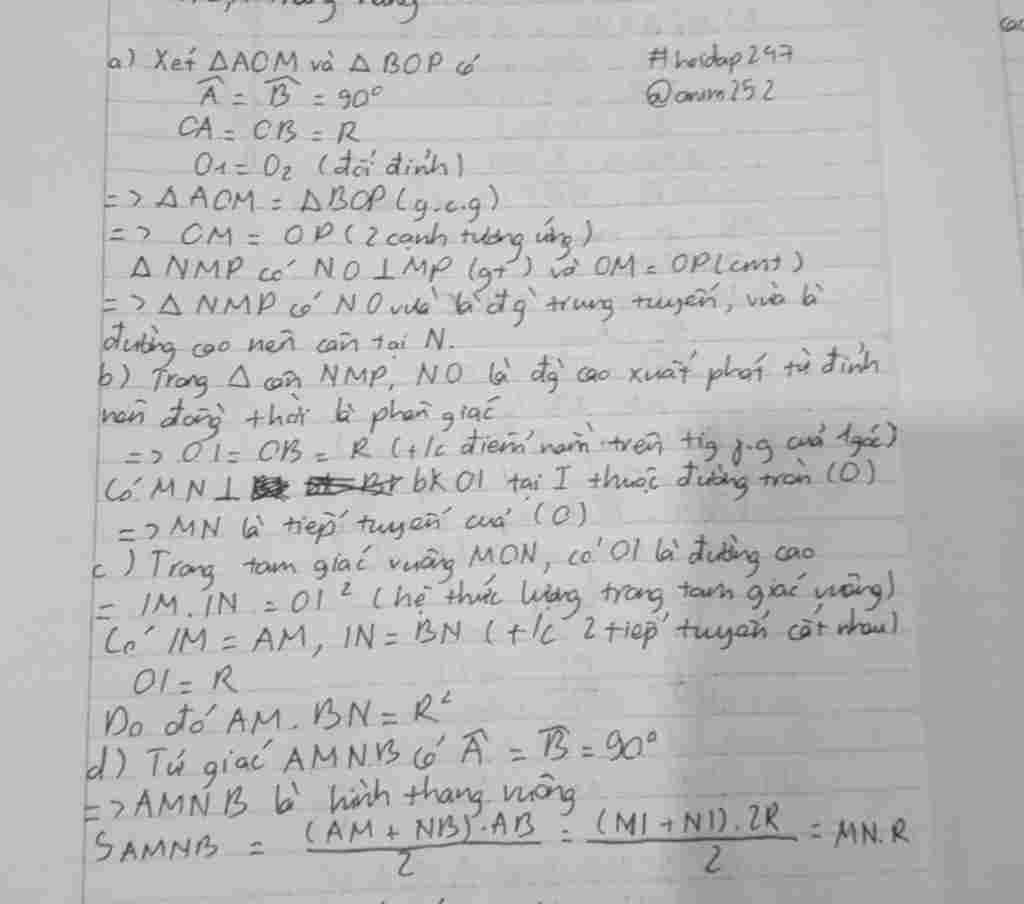 a) Xét ΔAOM và ΔBOP có
#hoidap247
Â = B̂ = 90°
@anum252
OA = OB = R
O1 = O2 (đối đỉnh)
=> ΔAOM = ΔBOP (g.c.g)
=> OM = OP (2 cạnh tương ứng)
ΔNMP có NO ⊥ MP (gt) và OM = OP (cmt)
=> ΔNMP có NO vừa là đg trung tuyến, vừa là
đường cao nên cân tại N.
b) Trong Δ cân NMP, NO là đg cao xuất phát từ đỉnh
nên đồng thời là phân giác
=> OI = OB = R (t/c điểm nằm trên tig p.g của 1góc)
Có MN ⊥ bk OI tại I thuộc đường tròn (O)
=> MN là tiếp tuyến của (O)
c) Trong tam giác vuông MON, có OI là đường cao
= IM.IN = OI² (hệ thức lượng trong tam giác vuông)
Có IM = AM, IN = BN (t/c 2 tiếp tuyến cắt nhau)
OI = R
Do đó AM.BN = R²
d) Tứ giác AMNB có Â = B̂ = 90°
=> AMNB là hình thang vuông
SAMNB = (AM + NB).AB / 2 = (MI + NI).2R / 2 = MN.R